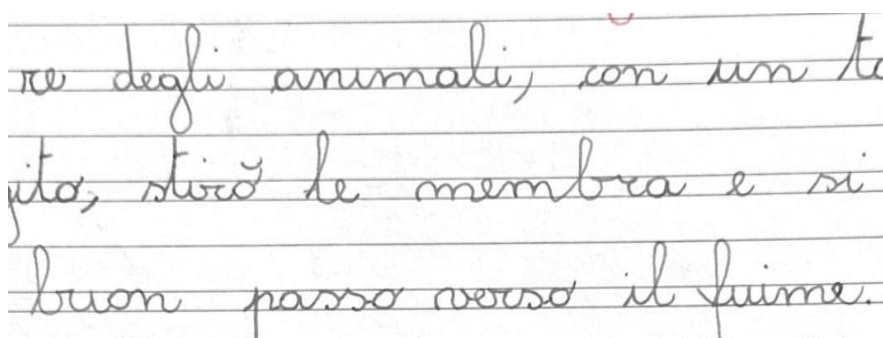 re degli animali, con un
ito, stirò le membra e si
buon passo verso il fuime.